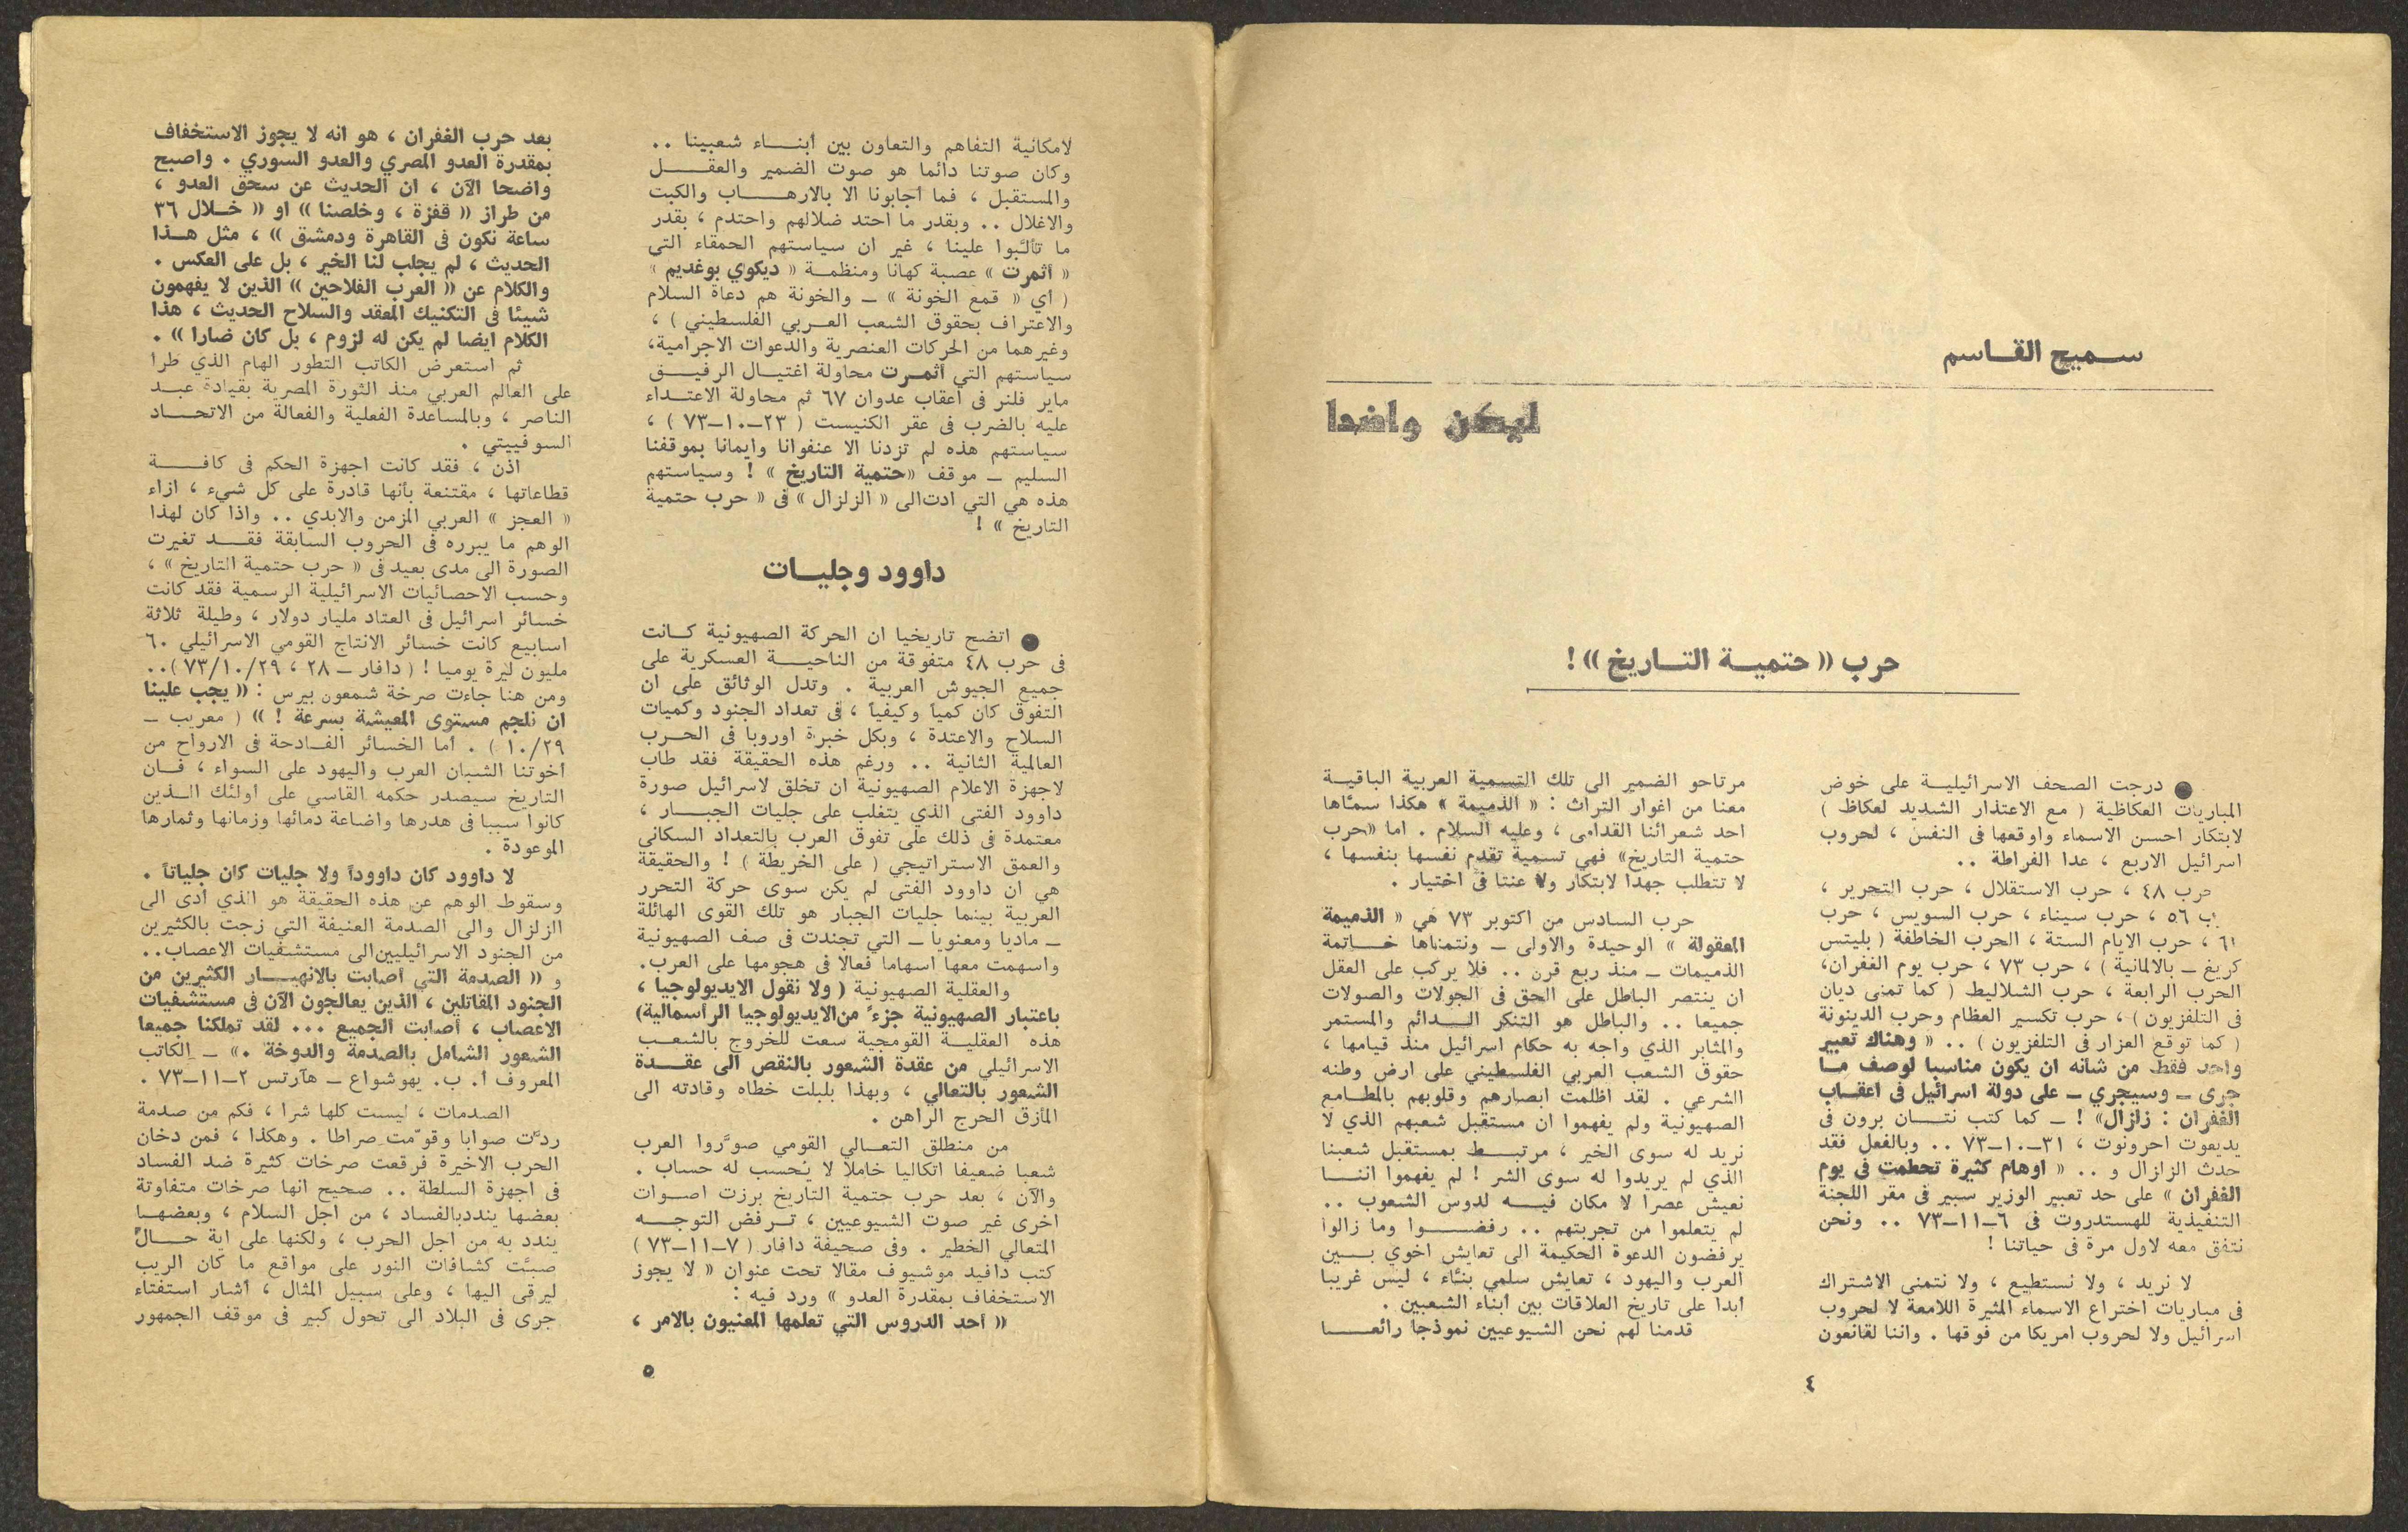 سميح القاسم
ليكن واضحا
حرب «حتمية التاريخ»!
● درجت الصحف الاسرائيلية على خوض
المباريات العكاظية ( مع الاعتذار الشديد لعكاظ )
لابتكار احسن الاسماء واوقعها فى النفس ، لحروب
اسرائيل الاربع ، عدا الفراطة ..
حرب ٤٨ ، حرب الاستقلال ، حرب التحرير ،
ب ٥٦ ، حرب سيناء ، حرب السويس ، حرب
٦١ ، حرب الايام الستة ، الحرب الخاطفة ( بليتس
كريغ ــ بالالمانية ) ، حرب ٧٣ ، حرب يوم الغفران،
الحرب الرابعة ، حرب الشلاليط ( كما تمنى ديان
فى التلفزيون ) ، حرب تكسير العظام وحرب الدينونة
( كما توقع العزار فى التلفزيون ) .. « وهناك تعبير
واحد فقط من شأنه ان يكون مناسبا لوصف مــا
جرى ــ وسيجري ــ على دولة اسرائيل فى اعقـاب
الغفران : زلزال» ! ــ كما كتب نتــان برون فى
يديعوت احرونوت ، ٣١ــ١٠ــ٧٣ .. وبالفعل فقد
حدث الزلزال و .. « اوهام كثيرة تحطمت فى يوم
الغفران » على حد تعبير الوزير سبير فى مقر اللجنة
التنفيذية للهستدروت فى ٦ــ١١ــ٧٣ .. ونحن
نتفق معه لاول مرة فى حياتنا !
لا نريد ، ولا نستطيع ، ولا نتمنى الاشتراك
فى مباريات اختراع الاسماء المثيرة اللامعة لا لحروب
اسرائيل ولا لحروب امريكا من فوقها . واننا لقانعون
مرتاحو الضمير الى تلك التسمية العربية الباقيـة
معنا من اغوار التراث : « الذميمة » هكذا سمّاها
احد شعرائنا القدامى ، وعليه السلام . اما «حرب
حتمية التاريخ» فهي تسمية تقدم نفسها بنفسها ،
لا تتطلب جهدا لابتكار ولا عنتا فى اختيار .
حرب السادس من اكتوبر ٧٣ هي « الذميمة
المعقولة » الوحيدة والاولى ــ ونتمناها خــاتمة
الذميمات ــ منذ ربع قرن .. فلا يركب على العقل
ان ينتصر الباطل على الحق فى الجولات والصولات
جميعا .. والباطل هو التنكر الــدائم والمستمر
والمثابر الذي واجه به حكام اسرائيل منذ قيامها ،
حقوق الشعب العربي الفلسطيني على ارض وطنه
الشرعي . لقد اظلمت ابصارهم وقلوبهم بالمطـامع
الصهيونية ولم يفهموا ان مستقبل شعبهم الذي لا
نريد له سوى الخير ، مرتبــط بمستقبل شعبنا
الذي لم يريدوا له سوى الشر ! لم يفهموا اننــا
نعيش عصرا لا مكان فيــه لدوس الشعوب ..
لم يتعلموا من تجربتهم .. رفضـــوا وما زالوا
يرفضون الدعوة الحكيمة الى تعايش اخوي بــين
العرب واليهود ، تعايش سلمي بنّاء ، ليس غريبا
ابدا على تاريخ العلاقات بين أبناء الشعبين .
قدمنا لهم نحن الشيوعيين نموذجا رائعــا
٤
لامكانية التفاهم والتعاون بين أبنــاء شعبينا ..
وكان صوتنا دائما هو صوت الضمير والعقــل
والمستقبل ، فما أجابونا الا بالارهــاب والكبت
والاغلال .. وبقدر ما احتد ضلالهم واحتدم ، بقدر
ما تألّبوا علينا ، غير ان سياستهم الحمقاء التي
« أثمرت » عصبة كهانا ومنظمـة « ديكوي بوغديم »
( أي « قمع الخونة » ــ والخونة هم دعاة السلام
والاعتراف بحقوق الشعب العــربي الفلسطيني ) ،
وغيرهما من الحركات العنصرية والدعوات الاجرامية،
سياستهم التي أثمـرت محاولة اغتيـال الرفيـق
ماير فلنر فى أعقاب عدوان ٦٧ ثم محاولة الاعتـداء
عليه بالضرب فى عقر الكنيست ( ٢٣ــ١٠ــ٧٣ ) ،
سياستهم هذه لم تزدنا الا عنفوانا وايمانا بموقفنا
السليم ــ موقف «حتمية التاريخ » ! وسياستهم
هذه هي التي ادت الى « الزلزال » فى « حرب حتمية
التاريخ » !
داوود وجليـات
● اتضح تاريخيا ان الحركة الصهيونية كــانت
فى حرب ٤٨ متفوقة من الناحيــة العسكرية على
جميع الجيوش العربية . وتدل الوثائق على ان
التفوق كان كمياً وكيفياً ، فى تعداد الجنود وكميات
السلاح والاعتدة ، وبكل خبرة اوروبا فى الحــرب
العالمية الثانية .. ورغم هذه الحقيقة فقد طاب
لاجهزة الاعلام الصهيونية ان تخلق لاسرائيل صورة
داوود الفتى الذي يتغلب على جليات الجبــار ،
معتمدة فى ذلك على تفوق العرب بالتعداد السكاني
والعمق الاستراتيجي ( على الخريطة ) ! والحقيقة
هي ان داوود الفتى لم يكن سوى حركة التحرر
العربية بينما جليات الجبار هو تلك القوى الهائلة
ــ ماديا ومعنويا ــ التي تجندت فى صف الصهيونية
واسهمت معها اسهاما فعالا فى هجومها على العرب.
والعقلية الصهيونية ( ولا نقول الايديولوجيا ،
باعتبار الصهيونية جزءُ من الايديولوجيا الرأسمالية)
هذه العقليــة القومجية سعت للخروج بالشعـب
الاسرائيلي من عقدة الشعور بالنقص الى عقــدة
الشعور بالتعالي ، وبهذا بلبلت خطاه وقادته الى
المأزق الحرج الراهن .
من منطلق التعـالي القومي صوّروا العرب
شعبا ضعيفا اتكاليا خاملا لا يُحسب له حساب .
والآن ، بعد حرب حتمية التاريخ برزت اصـوات
اخرى غير صوت الشيوعيين ، تــرفض التوجــه
المتعالي الخطير . وفى صحيفة دافار ( ٧ــ١١ــ٧٣ )
كتب دافيد موشيوف مقالا تحت عنوان « لا يجوز
الاستخفاف بمقدرة العدو » ورد فيه :
« أحد الدروس التي تعلمها المعنيون بالامر ،
بعد حرب الغفران ، هو انه لا يجوز الاستخفاف
بمقدرة العدو المصري والعدو السوري . واصبح
واضحا الآن ، ان الحديث عن سحق العدو ،
من طراز « قفزة ، وخلصنا » او « خـلال ٣٦
ساعة نكون فى القاهرة ودمشق » ، مثل هــذا
الحديث ، لم يجلب لنا الخير ، بل على العكس .
والكلام عن « العرب الفلاحين » الذين لا يفهمون
شيئا فى التكنيك المعقد والسلاح الحديث ، هذا
الكلام ايضا لم يكن له لزوم ، بل كان ضارا » .
ثم استعرض الكاتب التطور الهام الذي طرا
على العالم العربي منذ الثورة المصرية بقيادة عبـد
الناصر ، وبالمساعدة الفعلية والفعالة من الاتحــاد
السوفييتي .
اذن ، فقد كانت اجهزة الحكم فى كافــة
قطاعاتها ، مقتنعة بأنها قادرة على كل شيء ، ازاء
« العجز » العربي المزمن والابدي .. واذا كان لهذا
الوهم ما يبرره فى الحروب السابقة فقــد تغيرت
الصورة الى مدى بعيد فى « حرب حتمية التاريخ » ،
وحسب الاحصائيات الاسرائيلية الرسمية فقد كانت
خسائر اسرائيل فى العتاد مليار دولار ، وطيلة ثلاثة
اسابيع كانت خسائر الانتاج القومي الاسرائيلي ٦٠
مليون ليرة يوميا ! ( دافار ــ ٢٨ ، ٧٣/١٠/٢٩)..
ومن هنا جاءت صرخة شمعون بيرس : « يجب علينا
ان نلجم مستوى المعيشة بسرعة ! » ( معريب ــ
١٠/٢٩ ) . أما الخسائر الفــادحة فى الارواح من
اخوتنا الشبان العرب واليهود على السواء ، فــان
التاريخ سيصدر حكمه القاسي على اولئك الــذين
كانوا سببا فى هدرها واضاعة دمائها وزمانها وثمارها
الموعودة .
لا داوود كان داووداً ولا جليات كان جلياتاً .
وسقوط الوهم عن هذه الحقيقة هو الذي أدى الى
الزلزال والى الصدمة العنيفة التي زجت بالكثيرين
من الجنود الاسرائيليين الى مستشفيات الاعصاب..
و « الصدمة التي أصابت بالانهيــار الكثيرين من
الجنود المقاتلين ، الذين يعالجون الآن فى مستشفيات
الاعصاب ، أصابت الجميع ... لقد تملكنا جميعا
الشعور الشامل بالصدمة والدوخة .» ــ الكاتب
المعروف أ. ب. يهوشواع ــ هآرتس ٢ــ١١ــ٧٣ .
الصدمات ، ليست كلها شرا ، فكم من صدمة
ردّت صوابا وقوّمت صراطا . وهكذا ، فمن دخان
الحرب الاخيرة فرقعت صرخات كثيرة ضد الفساد
فى اجهزة السلطة .. صحيح انها صرخات متفاوتة
بعضها يندد بالفساد ، من اجل السلام ، وبعضهـا
يندد به من اجل الحرب ، ولكنها على اية حــالٍ
صبّت كشافات النور على مواقع ما كان الريب
ليرقى اليها ، وعلى سبيل المثال ، أشار استفتاء
جرى فى البلاد الى تحول كبير فى موقف الجمهور
٥